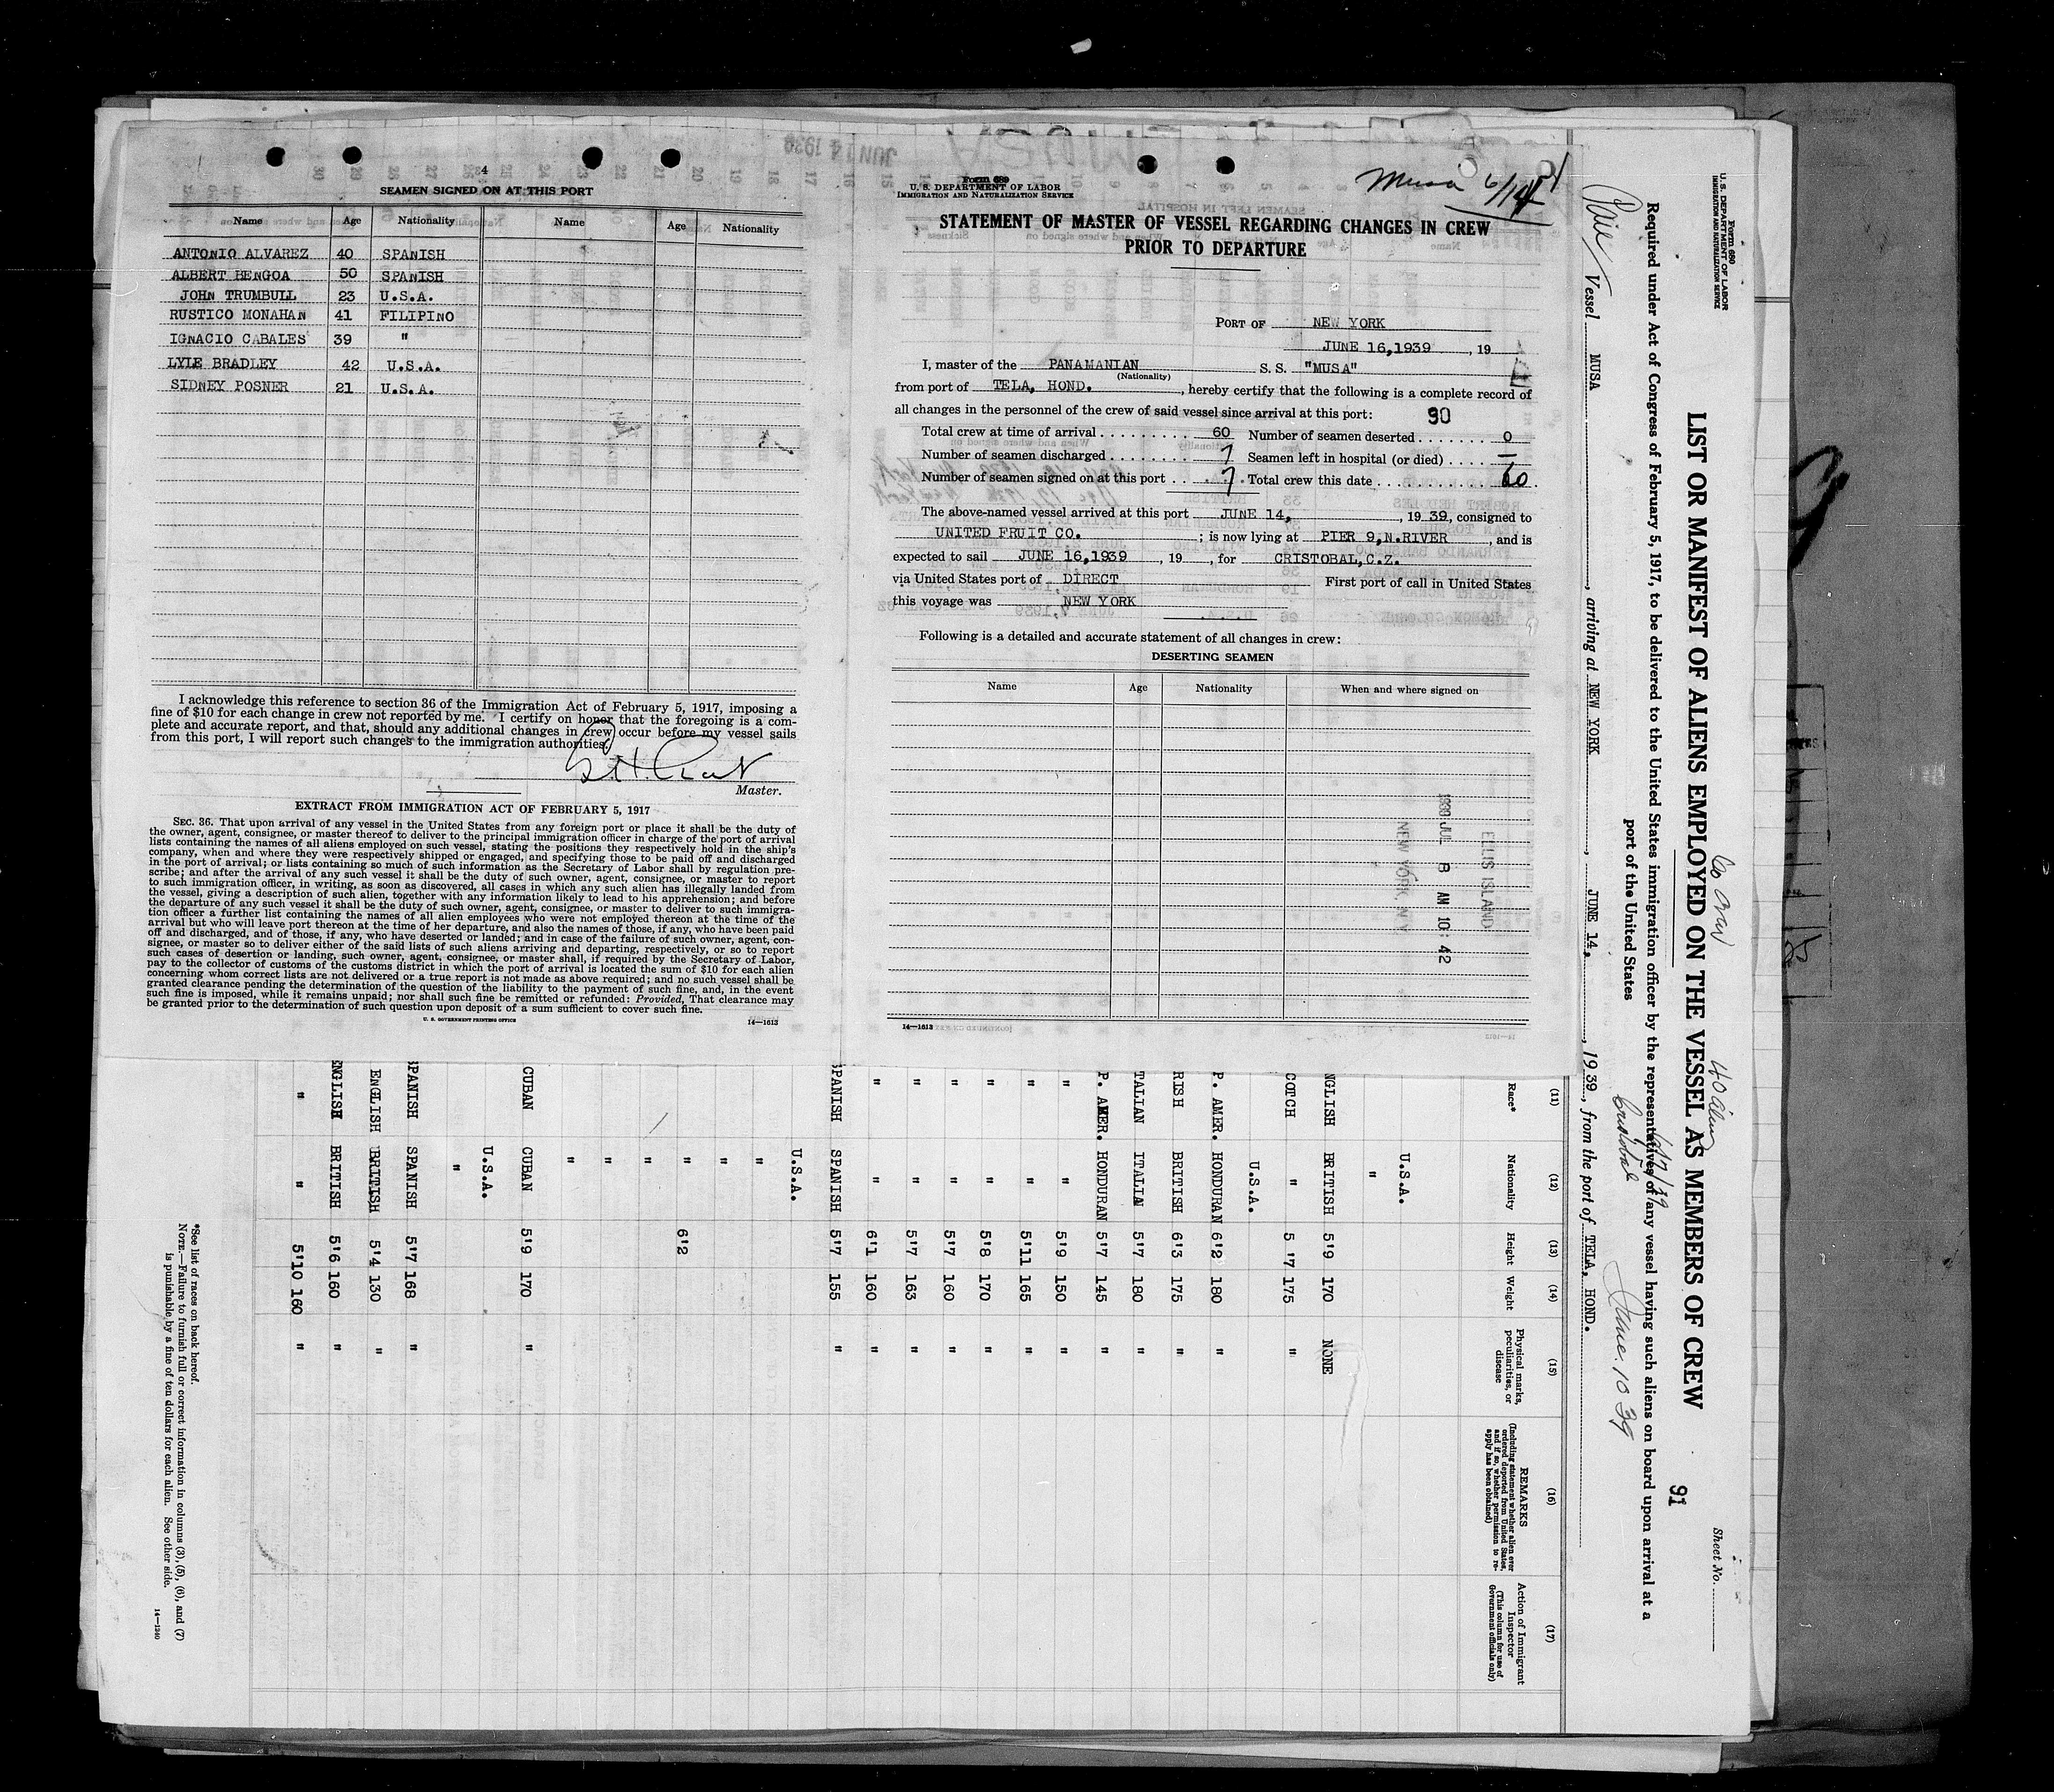 4
SEAMEN SIGNED ON AT THIS PORT
Name Age Nationality Name Age Nationality
ANTONIO ALVAREZ 40 SPANISH
ALBERT BENGOA 50 SPANISH
JOHN TRUMBULL 23 U.S.A.
RUSTICO MONAHAN 41 FILIPINO
IGNACIO CABALES 39 "
LYLE BRADLEY 42 U.S.A.
SIDNEY POSNER 21 U.S.A.
I acknowledge this reference to section 36 of the Immigration Act of February 5, 1917, imposing a
fine of $10 for each change in crew not reported by me. I certify on honor that the foregoing is a com-
plete and accurate report, and that, should any additional changes in crew occur before my vessel sails
from this port, I will report such changes to the immigration authorities.
Master.
EXTRACT FROM IMMIGRATION ACT OF FEBRUARY 5, 1917
SEC. 36. That upon arrival of any vessel in the United States from any foreign port or place it shall be the duty of
the owner, agent, consignee, or master thereof to deliver to the principal immigration officer in charge of the port of arrival
lists containing the names of all aliens employed on such vessel, stating the positions they respectively hold in the ship's
company, when and where they were respectively shipped or engaged, and specifying those to be paid off and discharged
in the port of arrival; or lists containing so much of such information as the Secretary of Labor shall by regulation pre-
scribe; and after the arrival of any such vessel it shall be the duty of such owner, agent, consignee, or master to report
to such immigration officer, in writing, as soon as discovered, all cases in which any such alien has illegally landed from
the vessel, giving a description of such alien, together with any information likely to lead to his apprehension; and before
the departure of any such vessel it shall be the duty of such owner, agent, consignee, or master to deliver to such immigra-
tion officer a further list containing the names of all alien employees who were not employed thereon at the time of the
arrival but who will leave port thereon at the time of her departure, and also the names of those, if any, who have been paid
off and discharged, and of those, if any, who have deserted or landed; and in case of the failure of such owner, agent, con-
signee, or master so to deliver either of the said lists of such aliens arriving and departing, respectively, or so to report
such cases of desertion or landing, such owner, agent, consignee, or master shall, if required by the Secretary of Labor,
pay to the collector of customs of the customs district in which the port of arrival is located the sum of $10 for each alien
concerning whom correct lists are not delivered or a true report is not made as above required; and no such vessel shall be
granted clearance pending the determination of the question of the liability to the payment of such fine, and, in the event
such fine is imposed, while it remains unpaid; nor shall such fine be remitted or refunded: Provided, That clearance may
be granted prior to the determination of such question upon deposit of a sum sufficient to cover such fine.
U. S. GOVERNMENT PRINTING OFFICE 14—1613
Form 689
U. S. DEPARTMENT OF LABOR
IMMIGRATION AND NATURALIZATION SERVICE
Musa 6/14
STATEMENT OF MASTER OF VESSEL REGARDING CHANGES IN CREW
PRIOR TO DEPARTURE
PORT OF NEW YORK
JUNE 16,1939 , 19
I, master of the PANAMANIAN S. S. "MUSA"
(Nationality)
from port of TELA, HOND. , hereby certify that the following is a complete record of
all changes in the personnel of the crew of said vessel since arrival at this port: 90
Total crew at time of arrival 60 Number of seamen deserted 0
Number of seamen discharged 7 Seamen left in hospital (or died) —
Number of seamen signed on at this port 7 Total crew this date 60
The above-named vessel arrived at this port JUNE 14, , 19 39, consigned to
UNITED FRUIT CO. ; is now lying at PIER 9,N.RIVER , and is
expected to sail JUNE 16,1939 , 19 , for CRISTOBAL,C.Z.
via United States port of DIRECT First port of call in United States
this voyage was NEW YORK
Following is a detailed and accurate statement of all changes in crew:
DESERTING SEAMEN
Name Age Nationality When and where signed on
ELLIS ISLAND
1939 JUL 8 AM 10:42
NEW YORK, N.Y.
14—1613
Form 680
U. S. DEPARTMENT OF LABOR
IMMIGRATION AND NATURALIZATION SERVICE
Sheet No.
60 Crew 40 Alien
LIST OR MANIFEST OF ALIENS EMPLOYED ON THE VESSEL AS MEMBERS OF CREW 91
Required under Act of Congress of February 5, 1917, to be delivered to the United States immigration officer by the representatives of any vessel having such aliens on board upon arrival at a
port of the United States
Cristobal June 10 39
Vessel MUSA , arriving at NEW YORK , JUNE 14, , 19 39, from the port of TELA, HOND.
(11) (12) (13) (14) (15) (16) (17)
Race* Nationality Height Weight Physical marks, peculiarities, or disease REMARKS (Including statement whether alien ever ordered deported from United States, and if so, whether permission to reapply has been obtained) Action of Immigrant Inspector (This column for use of Government officials only)
U.S.A.
"
NGLISH BRITISH 5'9 170 NONE
COTCH " 5'7 175 "
U.S.A.
P. AMER. HONDURAN 6'2 180 "
RISH BRITISH 6'3 175 "
TALIAN ITALIAN 5'7 180 "
P. AMER. HONDURAN 5'7 145 "
" " 5'9 150 "
" " 5'11 165 "
" " 5'8 170 "
" " 5'7 160 "
" " 5'7 163 "
" " 6'1 160 "
SPANISH SPANISH 5'7 155 "
U.S.A.
"
"
" 6'2
"
"
"
CUBAN CUBAN 5'9 170 "
U.S.A.
"
SPANISH SPANISH 5'7 168 "
ENGLISH BRITISH 5'4 130 "
ENGLISH BRITISH 5'6 160 "
" " 5'10 160 "
*See list of races on back hereof.
NOTE.—Failure to furnish full or correct information in columns (3), (5), (6), and (7)
is punishable by a fine of ten dollars for each alien. See other side.
14—1240